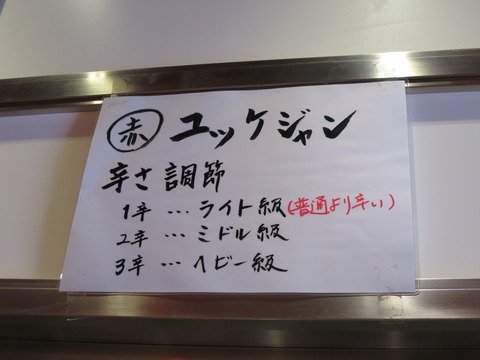 赤 ユッケジャン
辛さ調節
1辛…ライト級(普通より辛い)
2辛…ミドル級
3辛…ヘビー級